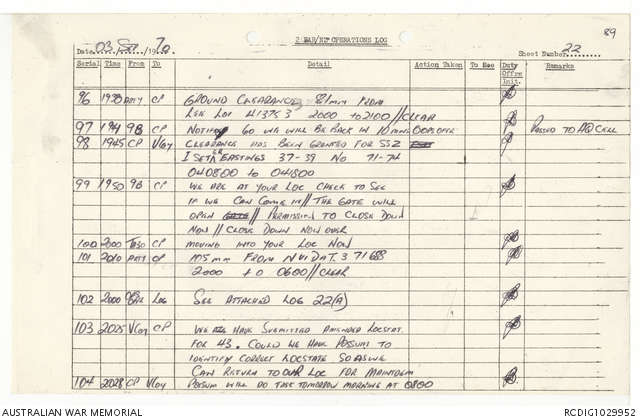 89
2 RAR/NZ OPERATIONS LOG
Date 03 Sep 1970 Sheet Number 22
Serial Time From To Detail Action Taken To Rec Duty Offrs Init. Remarks
96 1938 Arty CP GROUND CLEARANCE 81mm FROM
2000 to 2100 // CLEAR
97 1941 9B CP NOTIFY GO WILL BE BACK IN 10 MINS PASSED TO AQ CELL
98 1945 CP V Coy CLEARANCE HAS BEEN GRANTED FOR SSZ
EASTINGS 37-39 NO 71-74
040800 to 041800
99 1950 9B CP WE ARE AT YOUR LOC CHECK TO SEE
IF WE CAN COME IN // THE GATE WILL
OPEN // PERMISSION TO CLOSE DOWN
NOW // CLOSE DOWN NOW OVER
100 2000 CP MOVING INTO YOUR LOC NOW
101 2010 Arty CP 105mm FROM NUI DAT
2000 to 0600 // CLEAR
102 2000 LOG SEE ATTACHED LOG 22(A)
103 2025 V Coy CP WE HAVE SUBMITTED AMENDED LOCSTAT
FOR 43. COULD WE HAVE POSSUM TO
IDENTIFY CORRECT LOCSTATE SO AS WE
CAN RETURN TO OUR LOC FOR MAINTDEM
104 2028 CP V Coy POSSUM WILL DO TASK TOMORROW MORNING AT 0800
AUSTRALIAN WAR MEMORIAL RCDIG1029952